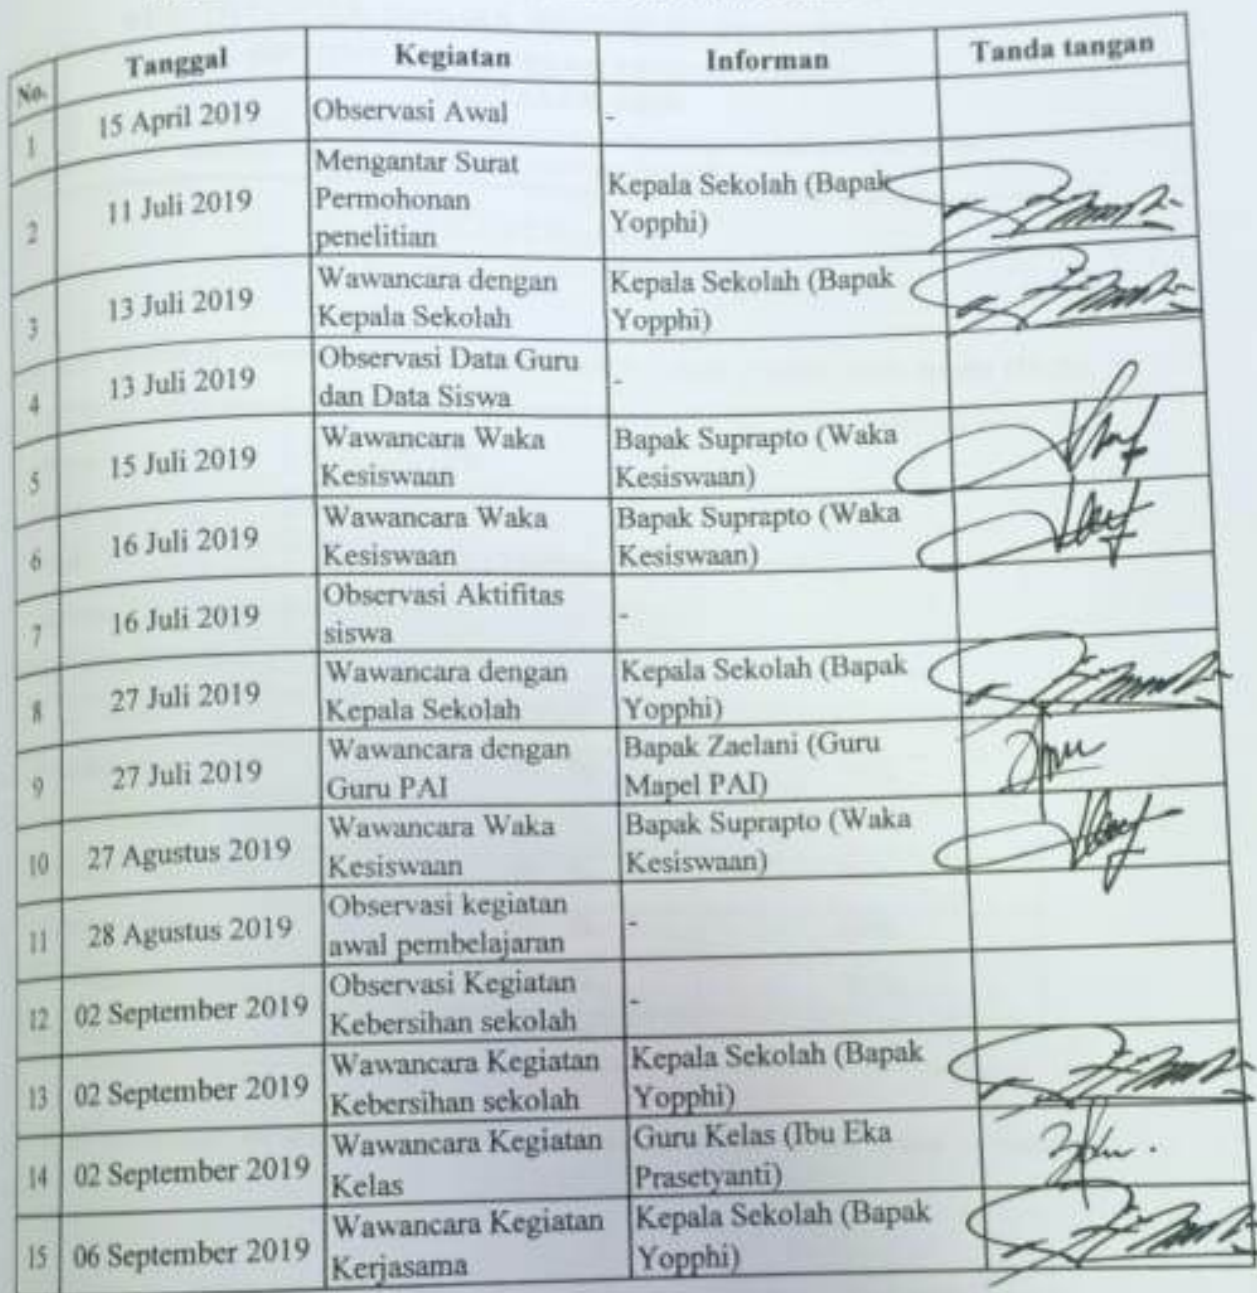 No. Tanggal Kegiatan Informan Tanda tangan
1 15 April 2019 Observasi Awal -
2 11 Juli 2019 Mengantar Surat
Permohonan
penelitian
Kepala Sekolah (Bapak
Yopphi)
3 13 Juli 2019 Wawancara dengan
Kepala Sekolah
Kepala Sekolah (Bapak
Yopphi)
4 13 Juli 2019 Observasi Data Guru
dan Data Siswa
-
5 15 Juli 2019 Wawancara Waka
Kesiswaan
Bapak Suprapto (Waka
Kesiswaan)
6 16 Juli 2019 Wawancara Waka
Kesiswaan
Bapak Suprapto (Waka
Kesiswaan)
7 16 Juli 2019 Observasi Aktifitas
siswa
-
8 27 Juli 2019 Wawancara dengan
Kepala Sekolah
Kepala Sekolah (Bapak
Yopphi)
9 27 Juli 2019 Wawancara dengan
Guru PAI
Bapak Zaelani (Guru
Mapel PAI)
10 27 Agustus 2019 Wawancara Waka
Kesiswaan
Bapak Suprapto (Waka
Kesiswaan)
11 28 Agustus 2019 Observasi kegiatan
awal pembelajaran
-
12 02 September 2019 Observasi Kegiatan
Kebersihan sekolah
-
13 02 September 2019 Wawancara Kegiatan
Kebersihan sekolah
Kepala Sekolah (Bapak
Yopphi)
14 02 September 2019 Wawancara Kegiatan
Kelas
Guru Kelas (Ibu Eka
Prasetyanti)
15 06 September 2019 Wawancara Kegiatan
Kerjasama
Kepala Sekolah (Bapak
Yopphi)